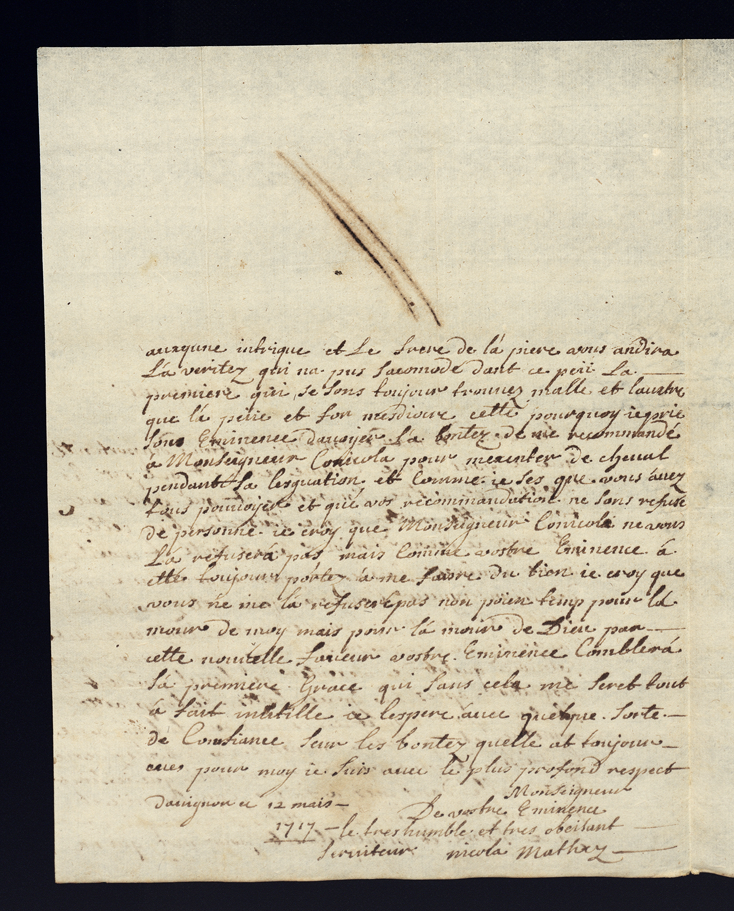 auxqune intrique et Le frere de la piere vous andira
La veritez qui na pus sacomode dant ce peii La
premiere qui se sons toujour trouuez malle et lauttre
que la peiie et for mesdiocre cette pourquoy ie prie
sons Eminence dauoyer La bontez de me recommandé
à Monseigneur Conicola pour de cheual
pendant La lesquation et Comme ie ses que vous auez
tous pouuoyer et qué vos recommandation ne sons refusé
de personne ie croy que Monseigneur Conicola ne vous
La refuserá pas mais Comme vostre Eminence à
etté toujour portez à me faire du bien ie croy que
vous ne me la refuseré pas non poien temp pour la
mour de moy mais pour la mour de Dieu par
cette nouuelle faueur vostre Eminence Comblerá
sá premiere Grace qui sans cela me seret tout
à fait inutille ie lespere auec quelque sorte
de Confiance seur les bontez quelle at toujour
eues pour moy ie suis auec le plus profond respect
Monseigneur
dauignon ce 12 mais De vostre Eminence
1717 le tres humble et tres obeisant
seruiteur nicola Mathey